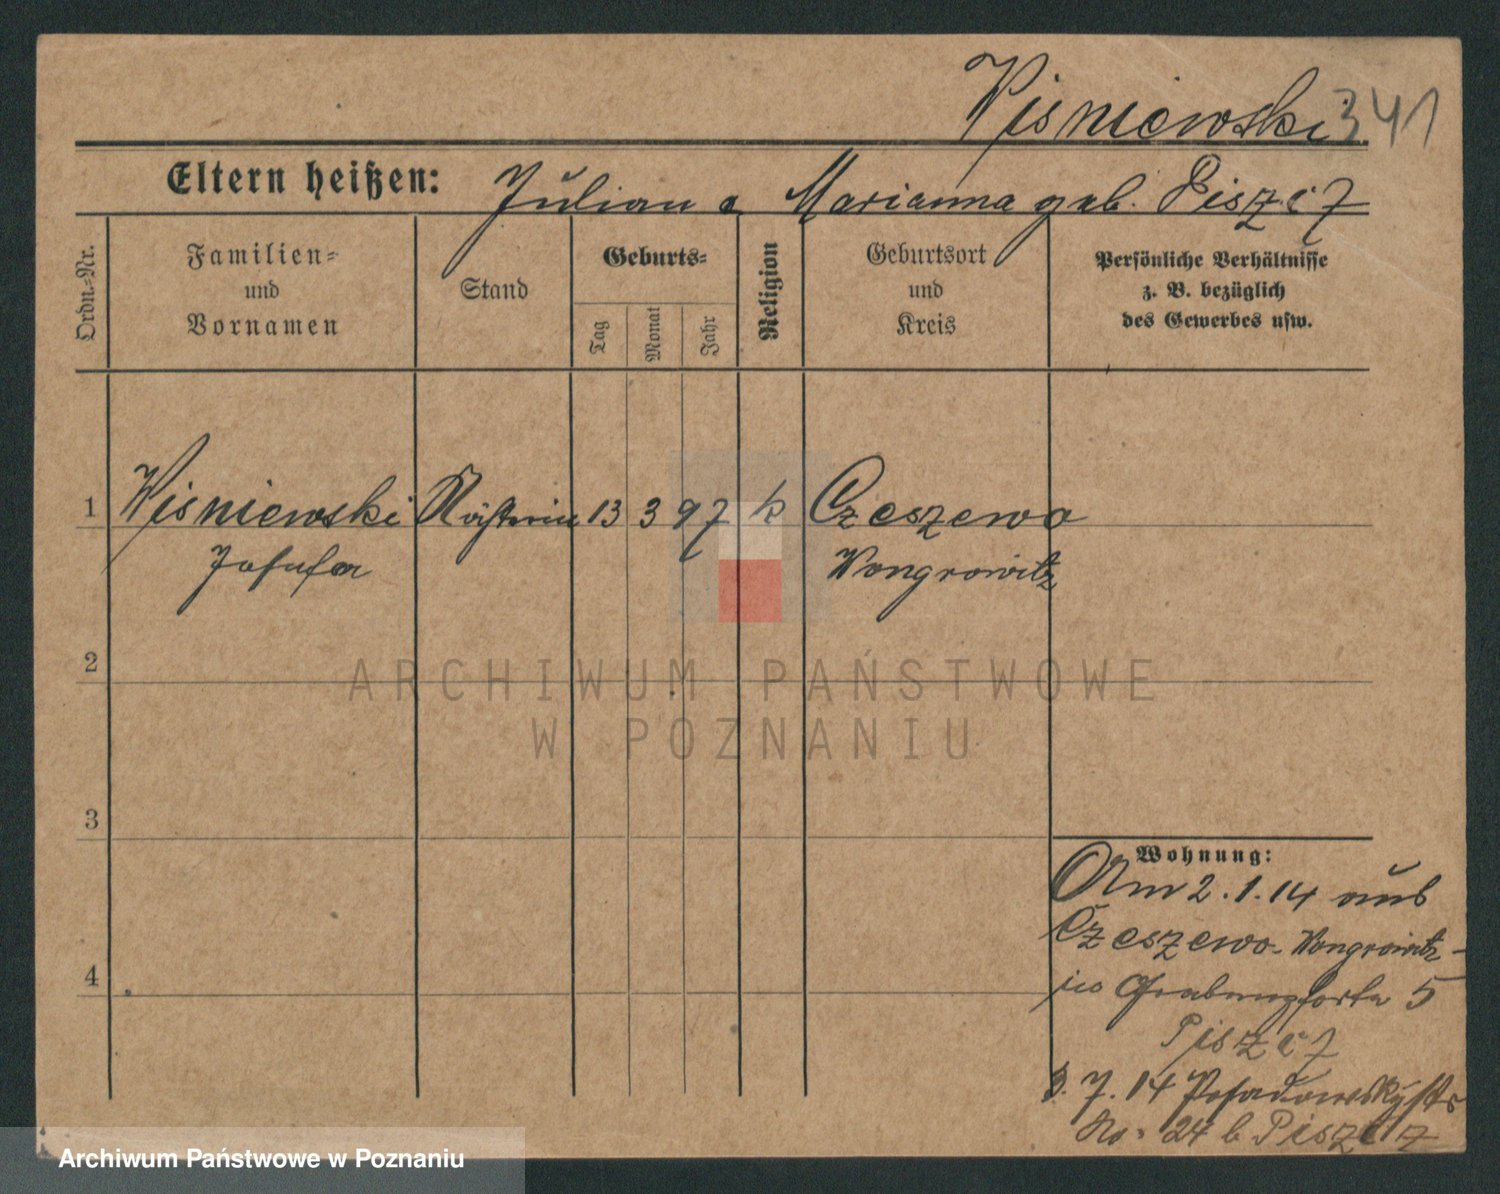 Wisniewski 341
Eltern heißen: Julian u Marianna geb. Piszcz
Ordn.-Nr.
Familien-
und
Vornamen
Stand
Geburts-
Tag
Monat
Jahr
Religion
Geburtsort
und
Kreis
Persönliche Verhältnisse
z. B. bezüglich
des Gewerbes usw.
1 Wisniewski 13 3 97 k Czeszewo
Josefa Wongrowitz
2
ARCHIWUM PAŃSTWOWE
W POZNANIU
3
Wohnung:
Am 2.1.14 aus
Czeszewo-Wongrowitz-
Grabenpforte 5
Piszcz
3.7.14 Posadowskystr
No. 24 b Piszcz
4
Archiwum Państwowe w Poznaniu